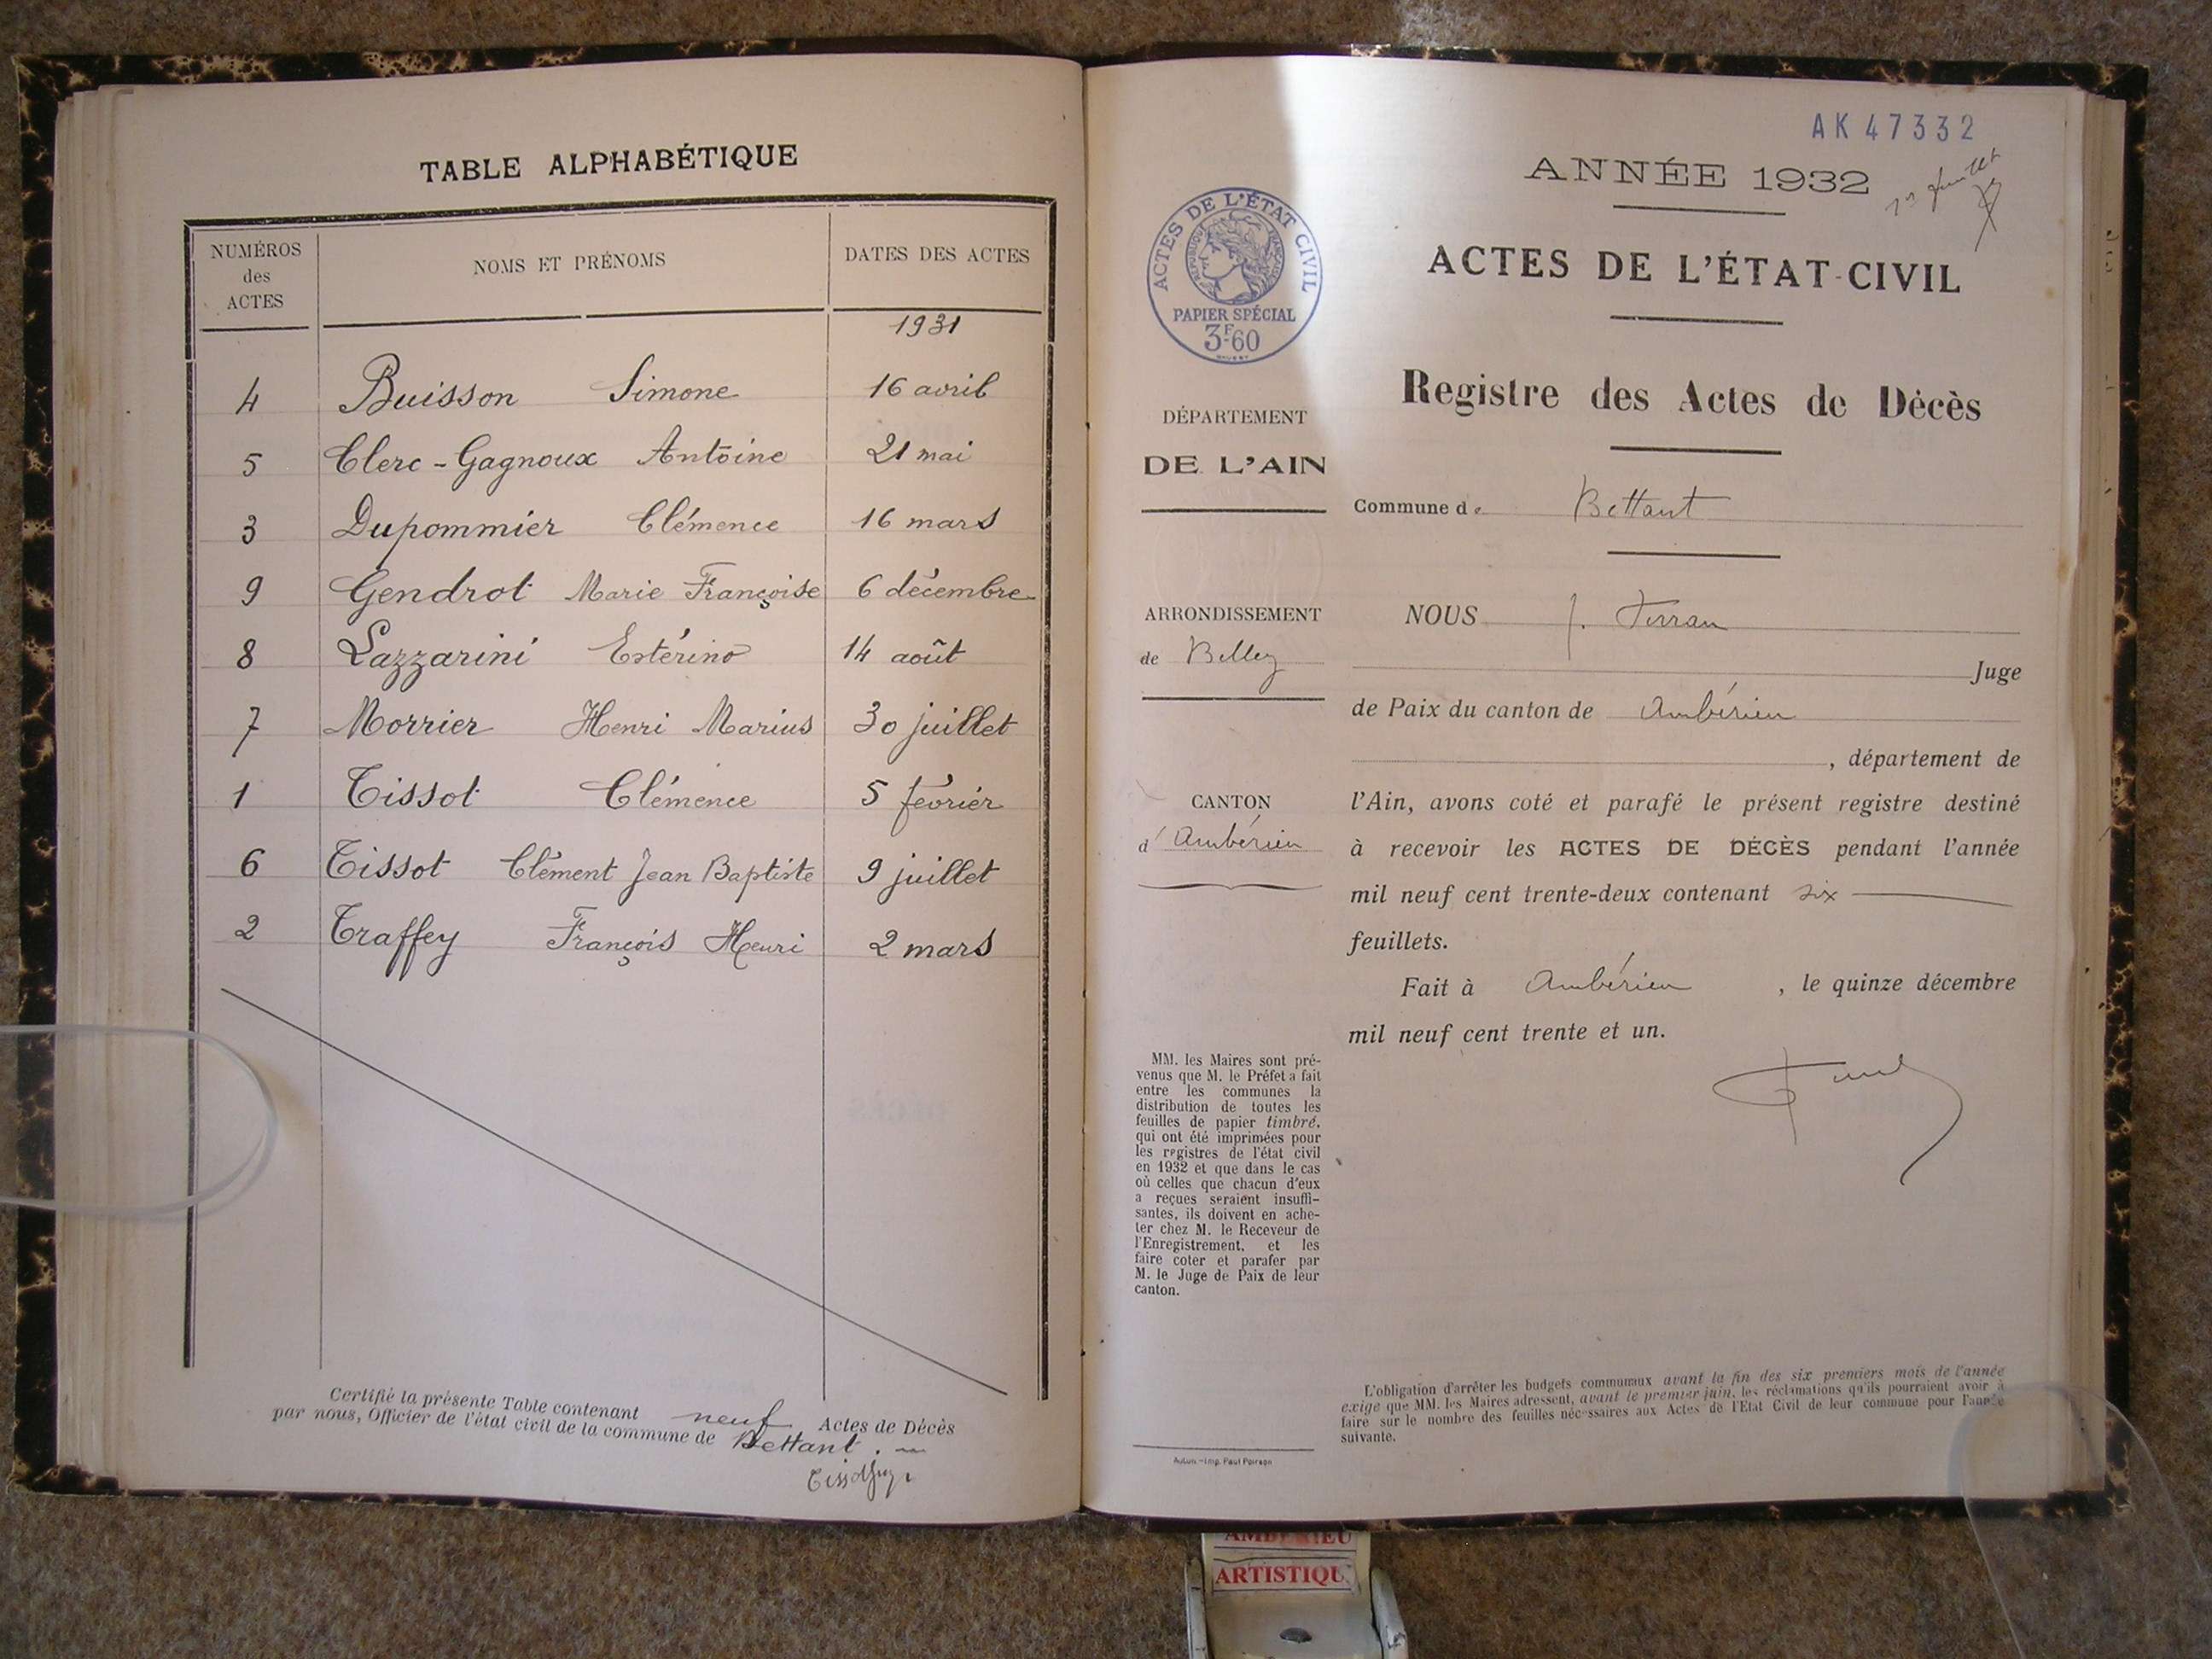 TABLE ALPHABÉTIQUE
NUMÉROS
des
ACTES
NOMS ET PRÉNOMS
DATES DES ACTES
1931
4 Buisson Simone 16 avril
5 Clerc-Gagnoux Antoine 21 mai
3 Dupommier Clémence 16 mars
9 Gendrot Marie Françoise 6 décembre
8 Lazzarini Estérino 14 août
7 Morrier Henri Marius 30 juillet
1 Tissot Clémence 5 février
6 Tissot Clément Jean Baptiste 9 juillet
2 Traffey François Henri 2 mars
Certifié la présente Table contenant neuf Actes de Décès
par nous, Officier de l'état civil de la commune de Bettant.
AK 47332
ANNÉE 1932
ACTES DE L'ÉTAT CIVIL
RÉPUBLIQUE FRANÇAISE
PAPIER SPÉCIAL
3F.60
ACTES DE L'ÉTAT-CIVIL
Registre des Actes de Décès
DÉPARTEMENT
DE L'AIN
Commune de Bettant
ARRONDISSEMENT
de Belley
CANTON
d'Ambérieu
NOUS J. Ferran
Juge
de Paix du canton de Ambérieu
, département de
l'Ain, avons coté et parafé le présent registre destiné
à recevoir les ACTES DE DÉCÈS pendant l'année
mil neuf cent trente-deux contenant six
feuillets.
Fait à Ambérieu , le quinze décembre
mil neuf cent trente et un.
MM. les Maires sont pré-
venus que M. le Préfet a fait
entre les communes la
distribution de toutes les
feuilles de papier timbré,
qui ont été imprimées pour
les registres de l'état civil
en 1932 et que dans le cas
où celles que chacun d'eux
a reçues seraient insuffi-
santes, ils doivent en ache-
ter chez M. le Receveur de
l'Enregistrement, et les
faire coter et parafer par
M. le Juge de Paix de leur
canton.
L'obligation d'arrêter les budgets communaux avant la fin des six premiers mois de l'année
exige que MM. les Maires adressent, avant le premier juin, les réclamations qu'ils pourraient avoir à
faire sur le nombre des feuilles nécessaires aux Actes de l'Etat Civil de leur commune pour l'année
suivante.
Autun. - Imp. Paul Poirson
AMBERIEU
ARTISTIQU